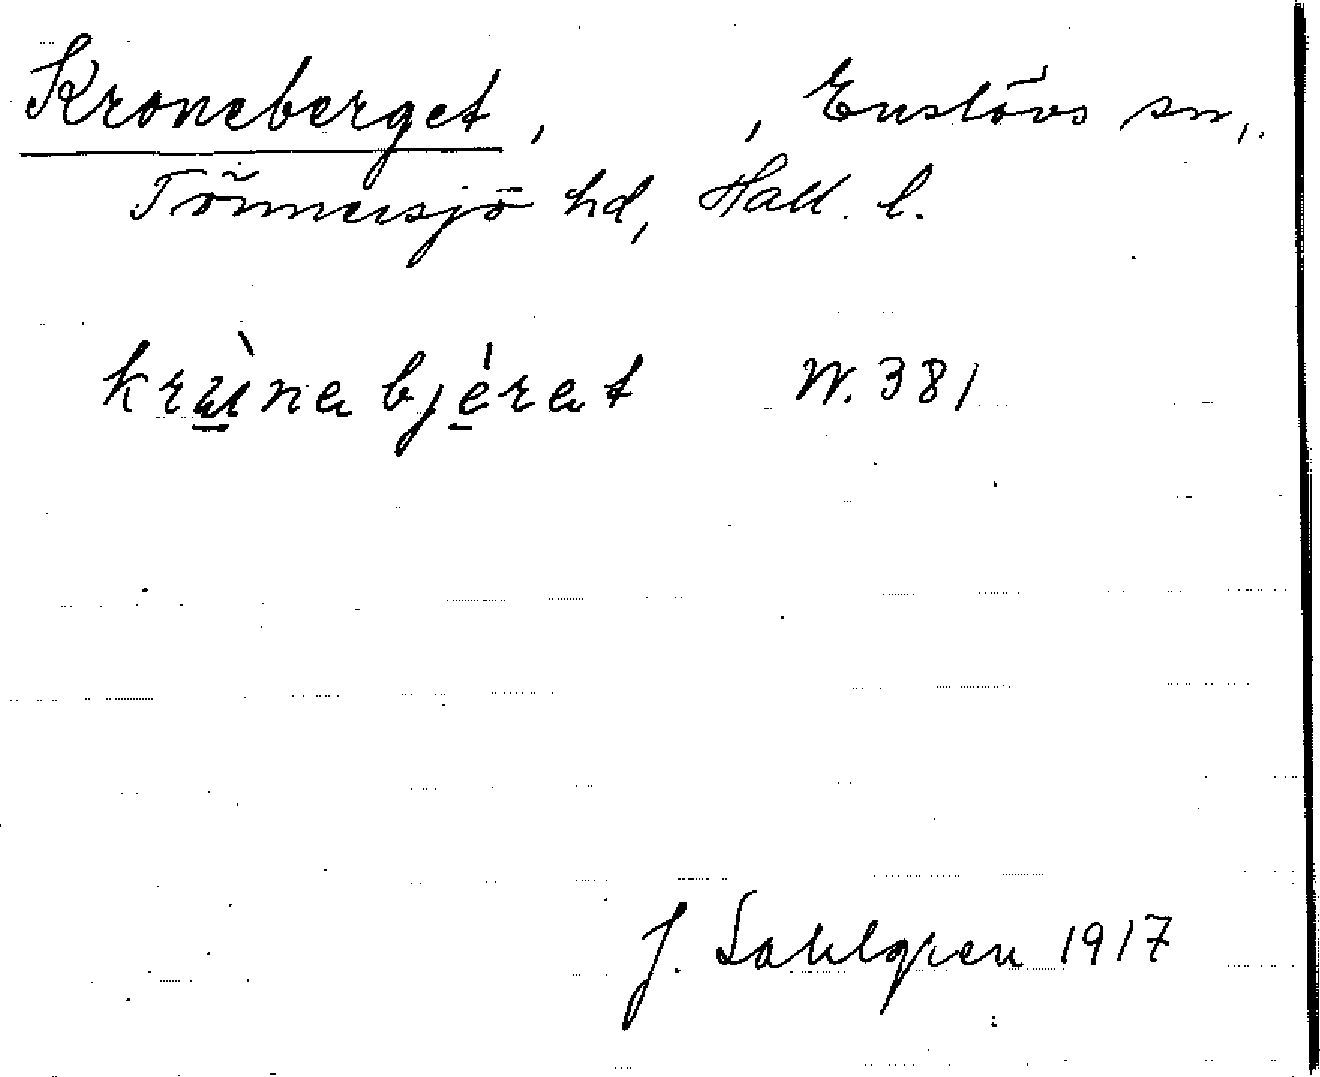 Kroneberget, , Enslövs sn,.
Tönnersjö hd, Hall. l.
krùna bjérat W. 381
J. Sahlgren 1917